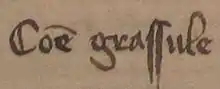 Coē grassule